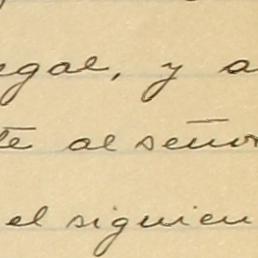 egal, y a
te al señor
el siguien